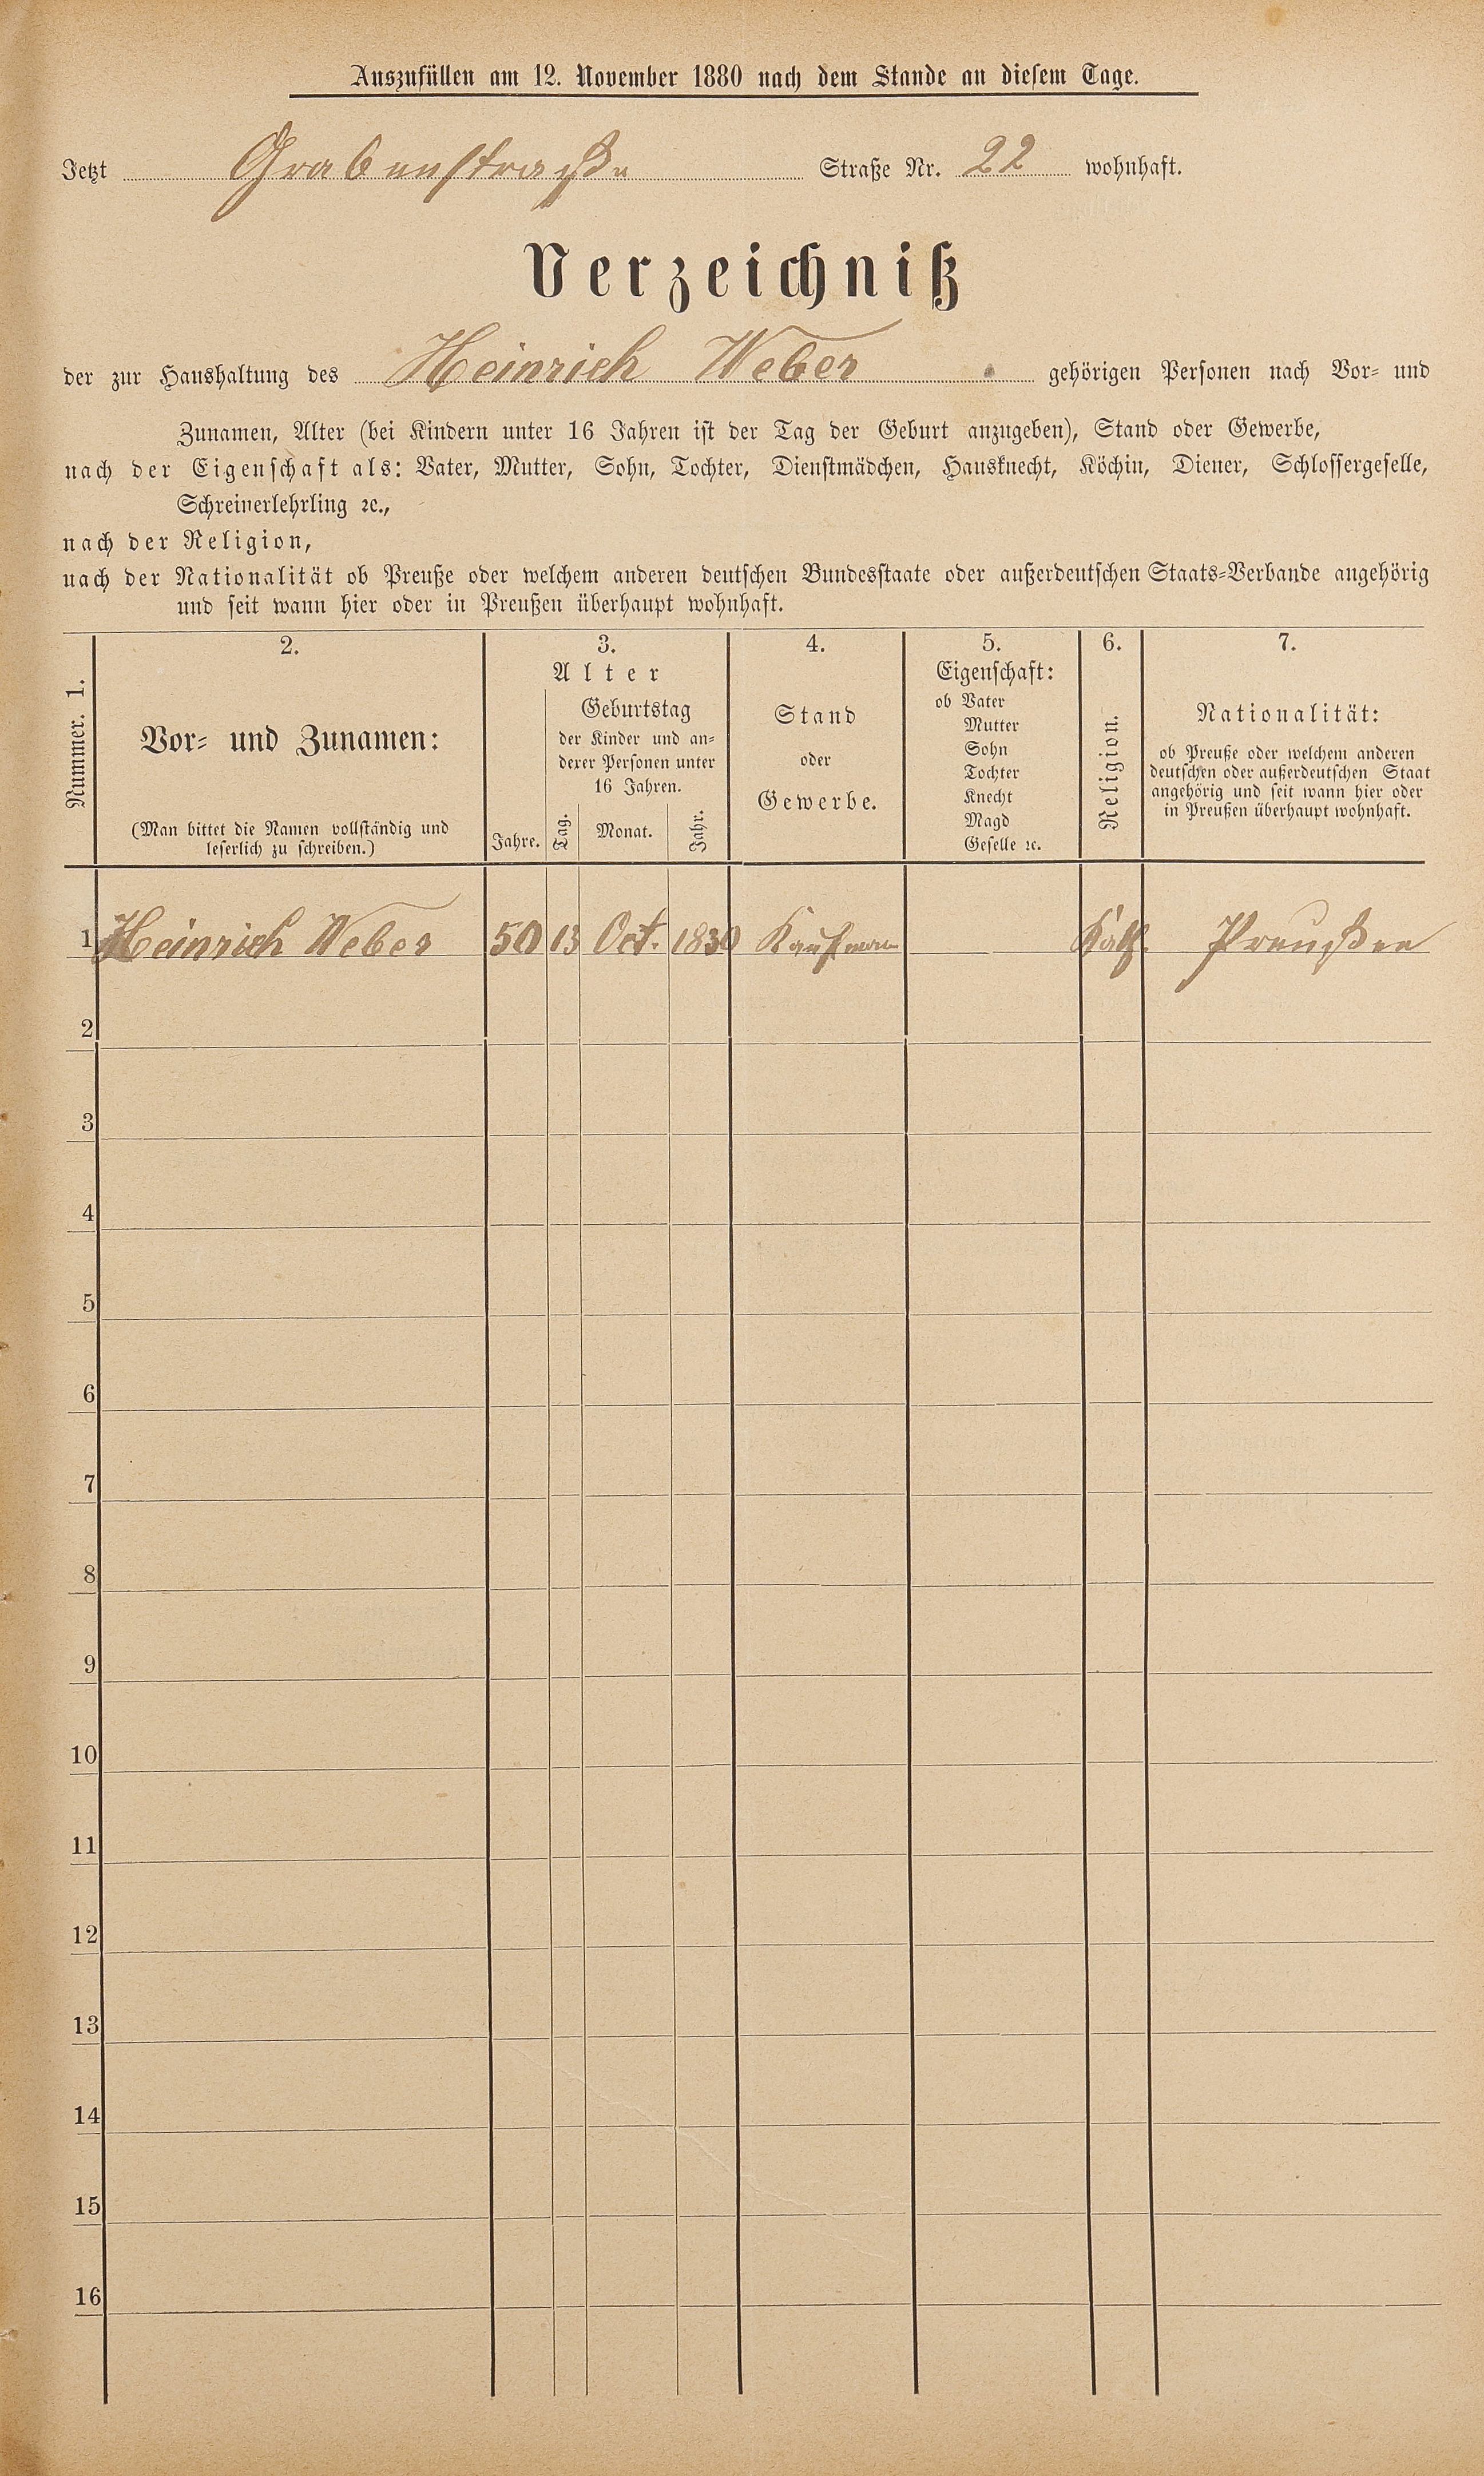 Auszufüllen am 12. November 1880 nach dem Stande an diesem Tage.
Jetzt Grabenstraße Straße Nr. 22 wohnhaft.
Verzeichniß
der zur Haushaltung des Heinrich Weber gehörigen Personen nach Vor- und
Zunamen, Alter (bei Kindern unter 16 Jahren ist der Tag der Geburt anzugeben), Stand oder Gewerbe,
nach der Eigenschaft als: Vater, Mutter, Sohn, Tochter, Dienstmädchen, Hausknecht, Köchin, Diener, Schlossergeselle,
Schreinerlehrling ꝛc.,
nach der Religion,
nach der Nationalität ob Preuße oder welchem anderen deutschen Bundesstaate oder außerdeutschen Staats-Verbande angehörig
und seit wann hier oder in Preußen überhaupt wohnhaft.
Nummer. 1.
2.
Vor- und Zunamen:
(Man bittet die Namen vollständig und
leserlich zu schreiben.)
3.
Alter
Jahre.
Geburtstag
der Kinder und an-
derer Personen unter
16 Jahren.
Tag. Monat. Jahr.
4.
Stand
oder
Gewerbe.
5.
Eigenschaft:
ob Vater
Mutter
Sohn
Tochter
Knecht
Magd
Geselle ꝛc.
6.
Religion.
7.
Nationalität:
ob Preuße oder welchem anderen
deutschen oder außerdeutschen Staat
angehörig und seit wann hier oder
in Preußen überhaupt wohnhaft.
1 Heinrich Weber 50 13 Oct. 1830 Kaufmann Kath. Preußen
2
3
4
5
6
7
8
9
10
11
12
13
14
15
16